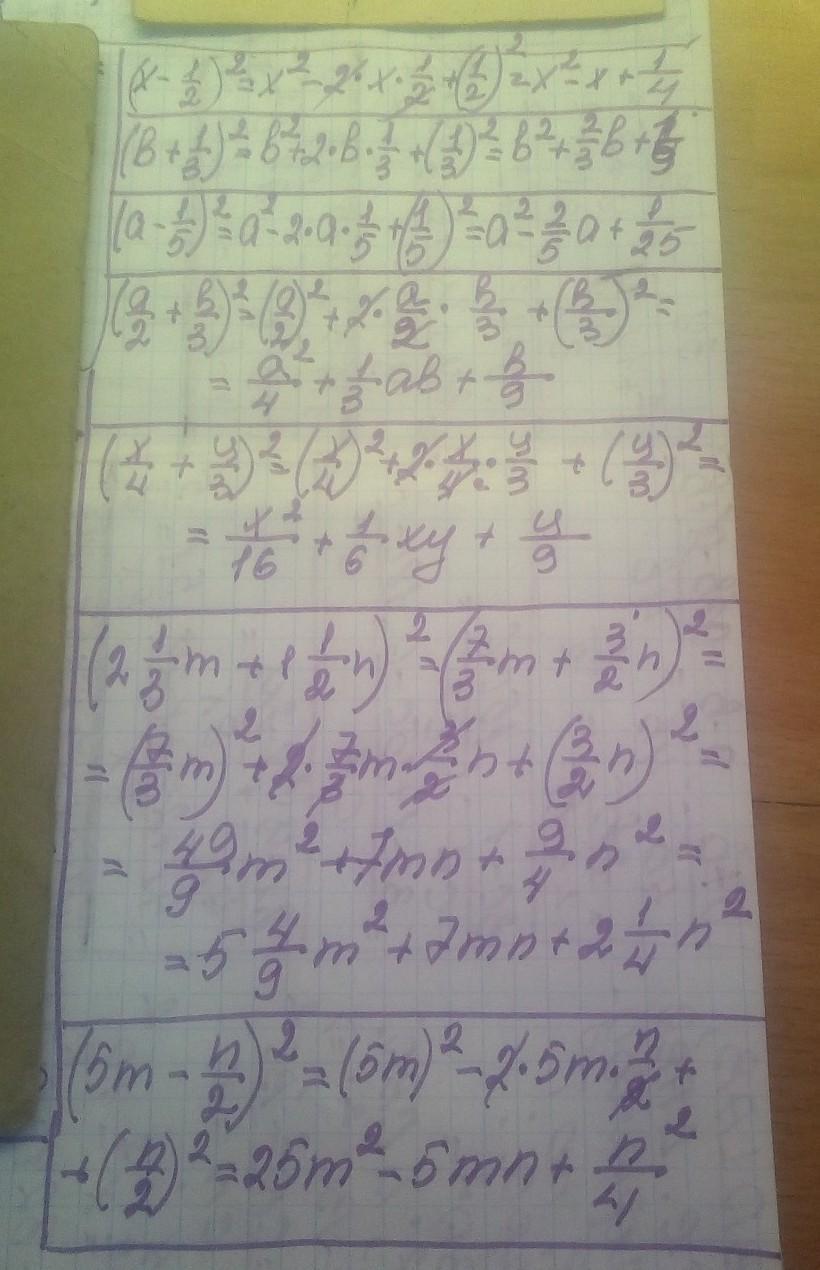 (x - 1/2)² = x² - 2·x·1/2 + (1/2)² = x² - x + 1/4
(b + 1/3)² = b² + 2·b·1/3 + (1/3)² = b² + 2/3 b + 1/9
(a - 1/5)² = a² - 2·a·1/5 + (1/5)² = a² - 2/5 a + 1/25
(a/2 + b/3)² = (a/2)² + 2·a/2·b/3 + (b/3)² =
= a²/4 + 1/3 ab + b/9
(x/4 + y/3)² = (x/4)² + 2·x/4·y/3 + (y/3)² =
= x²/16 + 1/6 xy + y/9
(2 1/3 m + 1 1/2 n)² = (7/3 m + 3/2 n)² =
= (7/3 m)² + 2·7/3 m·3/2 n + (3/2 n)² =
= 49/9 m² + 7mn + 9/4 n² =
= 5 4/9 m² + 7mn + 2 1/4 n²
(5m - n/2)² = (5m)² - 2·5m·n/2 +
+ (n/2)² = 25m² - 5mn + n²/4